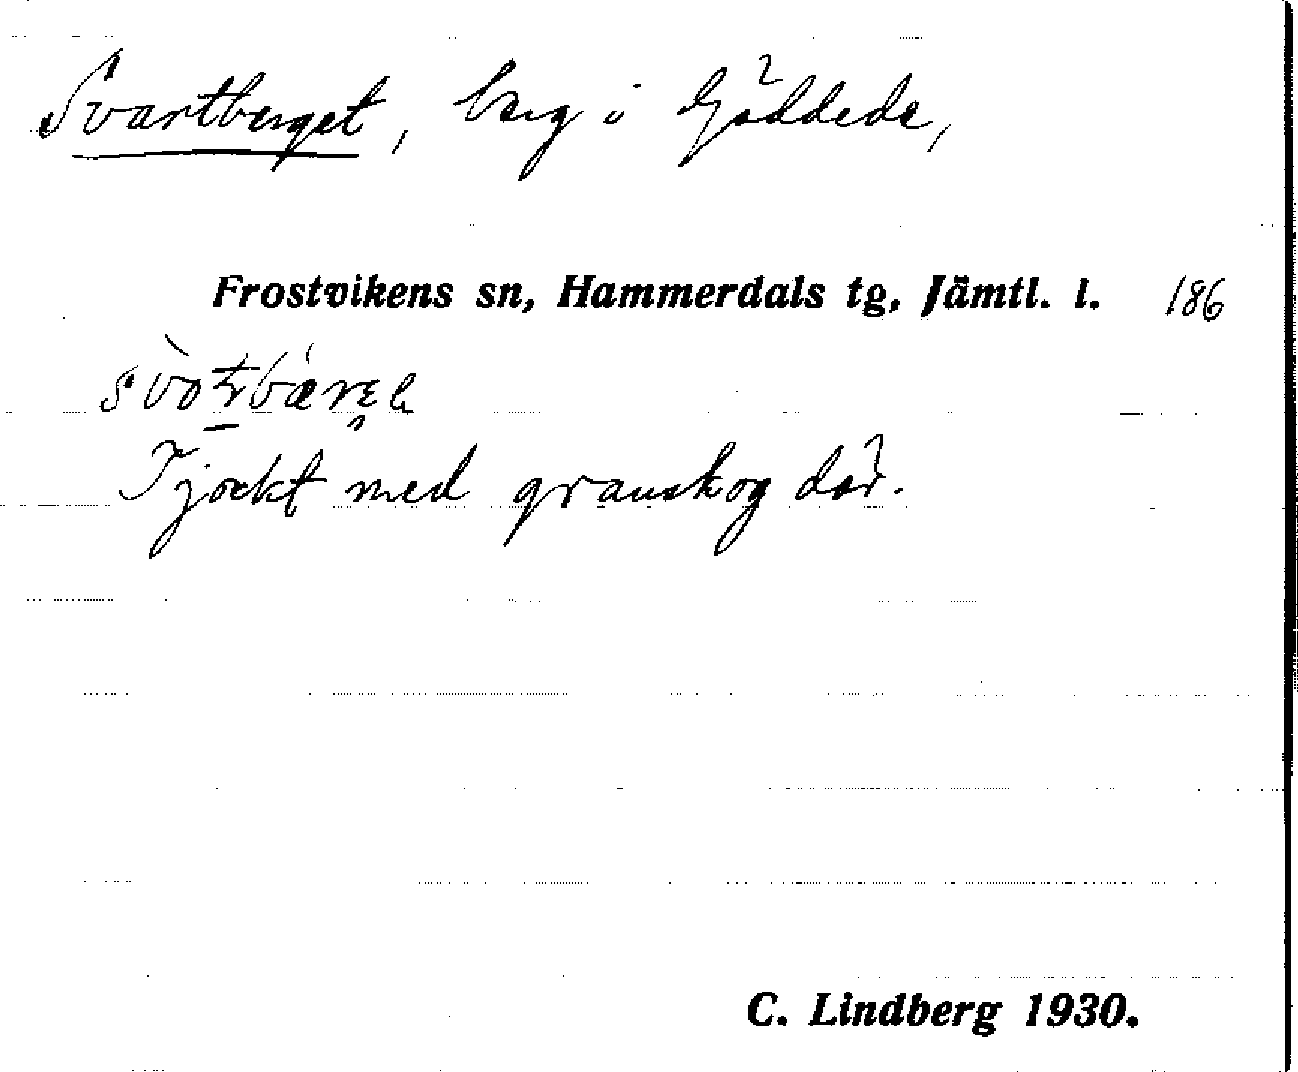 Svartberget, berg i Gäddede,
Frostvikens sn, Hammerdals tg, Jämtl. l. 186
Tjockt med granskog där.
C. Lindberg 1930.